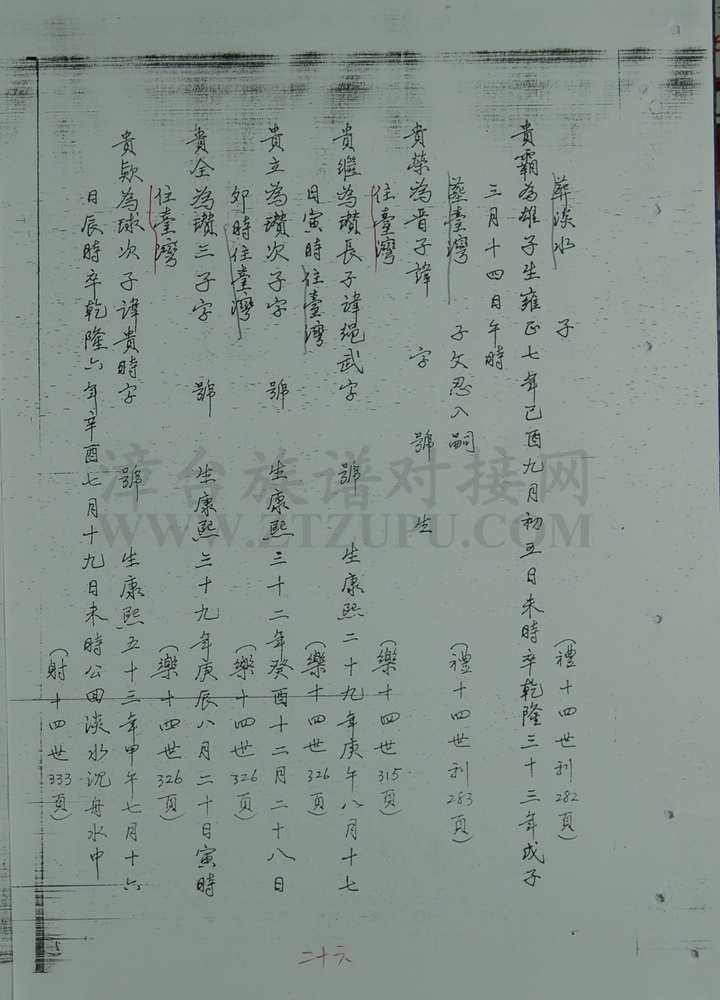 葬淡水 子 (禮十四世利282頁)
貴霸為雄子生雍正七年己酉九月初五日未時卒乾隆三十三年戊子
三月十四日午時
葬臺灣 子文忍入嗣 (禮十四世利283頁)
貴榮為晋子諱 字 號 生
住臺灣 (樂十四世315頁)
貴繼為瓚長子諱繩武字 號 生康熙二十九年庚午八月十七
日寅時住臺灣 (樂十四世326頁)
貴立為瓚次子字 號 生康熙三十二年癸酉十二月二十八日
卯時住臺灣 (樂十四世326頁)
貴全為瓚三子字 號 生康熙三十九年庚辰八月二十日寅時
住臺灣 (樂十四世326頁)
貴欵為球次子諱貴時字 號 生康熙五十三年甲午七月十六
日辰時卒乾隆六年辛酉七月十九日未時公回淡水沉舟水中
(射十四世333頁)
二十六
漳台族谱对接网
WWW.ZTZUPU.COM